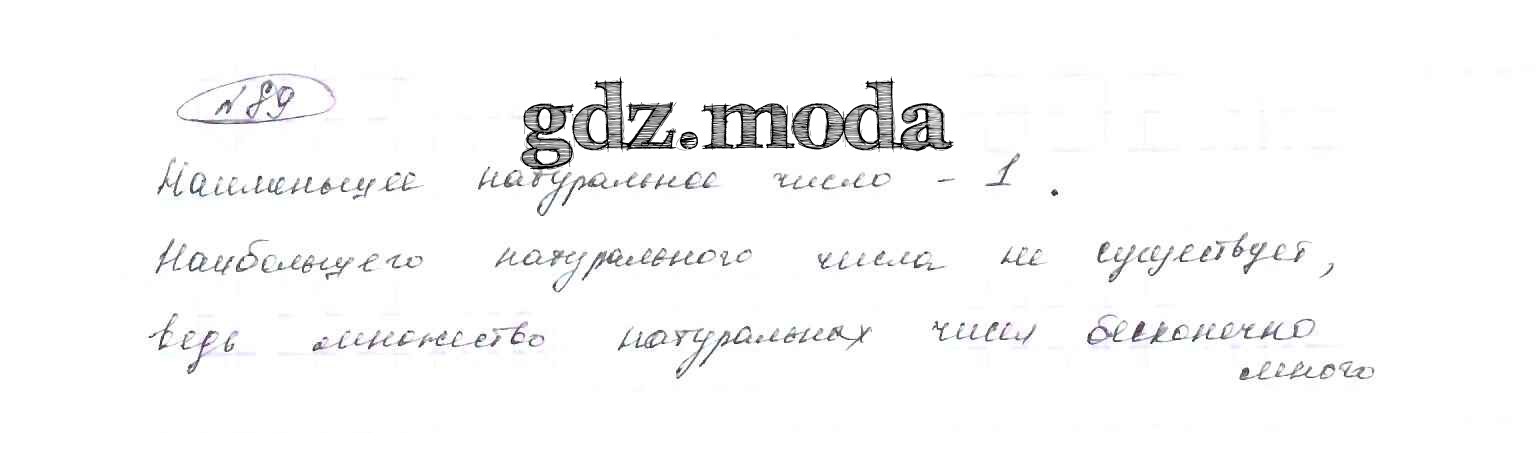 №89
gdz.moda
Наименьшее натуральное число - 1.
Наибольшего натурального числа не существует,
ведь множество натуральных чисел бесконечно
много